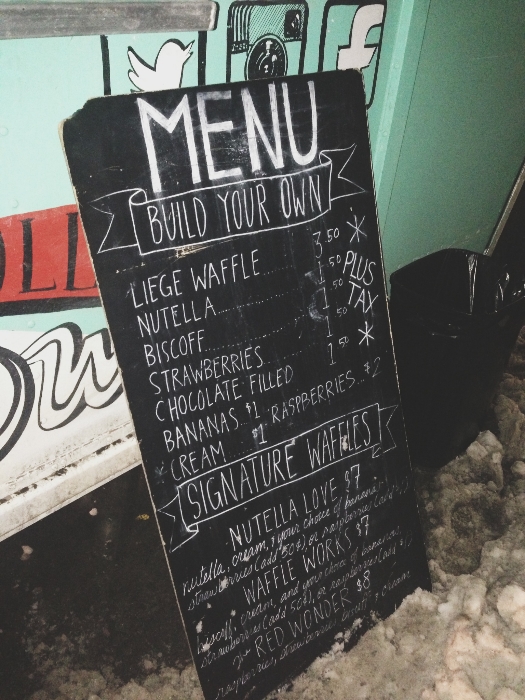 MENU
BUILD YOUR OWN
LIEGE WAFFLE 3.50 *
NUTELLA .50 PLUS
BISCOFF .50 TAX
STRAWBERRIES .50
CHOCOLATE FILLED 1.50 *
BANANAS..$1 RASPBERRIES..$2
CREAM $1
SIGNATURE WAFFLES
NUTELLA LOVE $7
nutella, cream, & your choice of banana
strawberries (add 50¢), or raspberries (add
WAFFLE WORKS $7
biscoff, cream, and your choice of bananas,
strawberries (add 50¢), or raspberries (add
RED WONDER $8
raspberries, strawberries, biscoff, cream